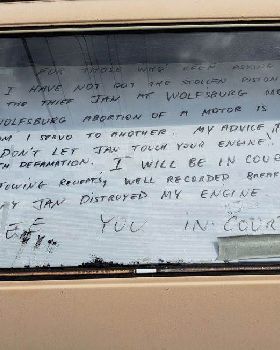 FOR THOSE WHO BEEN ASKING
I HAVE NOT GOT THE STOLEN PISTON
THE THIEF JAN AT WOLFSBURG
WOLFSBURG ABORTION OF A MOTOR IS
I SERVD TO ANOTHER. MY ADVICE
DON'T LET JAN TOUCH YOUR ENGINE.
DEFAMATION. I WILL BE IN COUR
TOWING RECIEPTS, WELL RECORDED BREAK
JAN DISTROYED MY ENGINE
YOU IN COURT